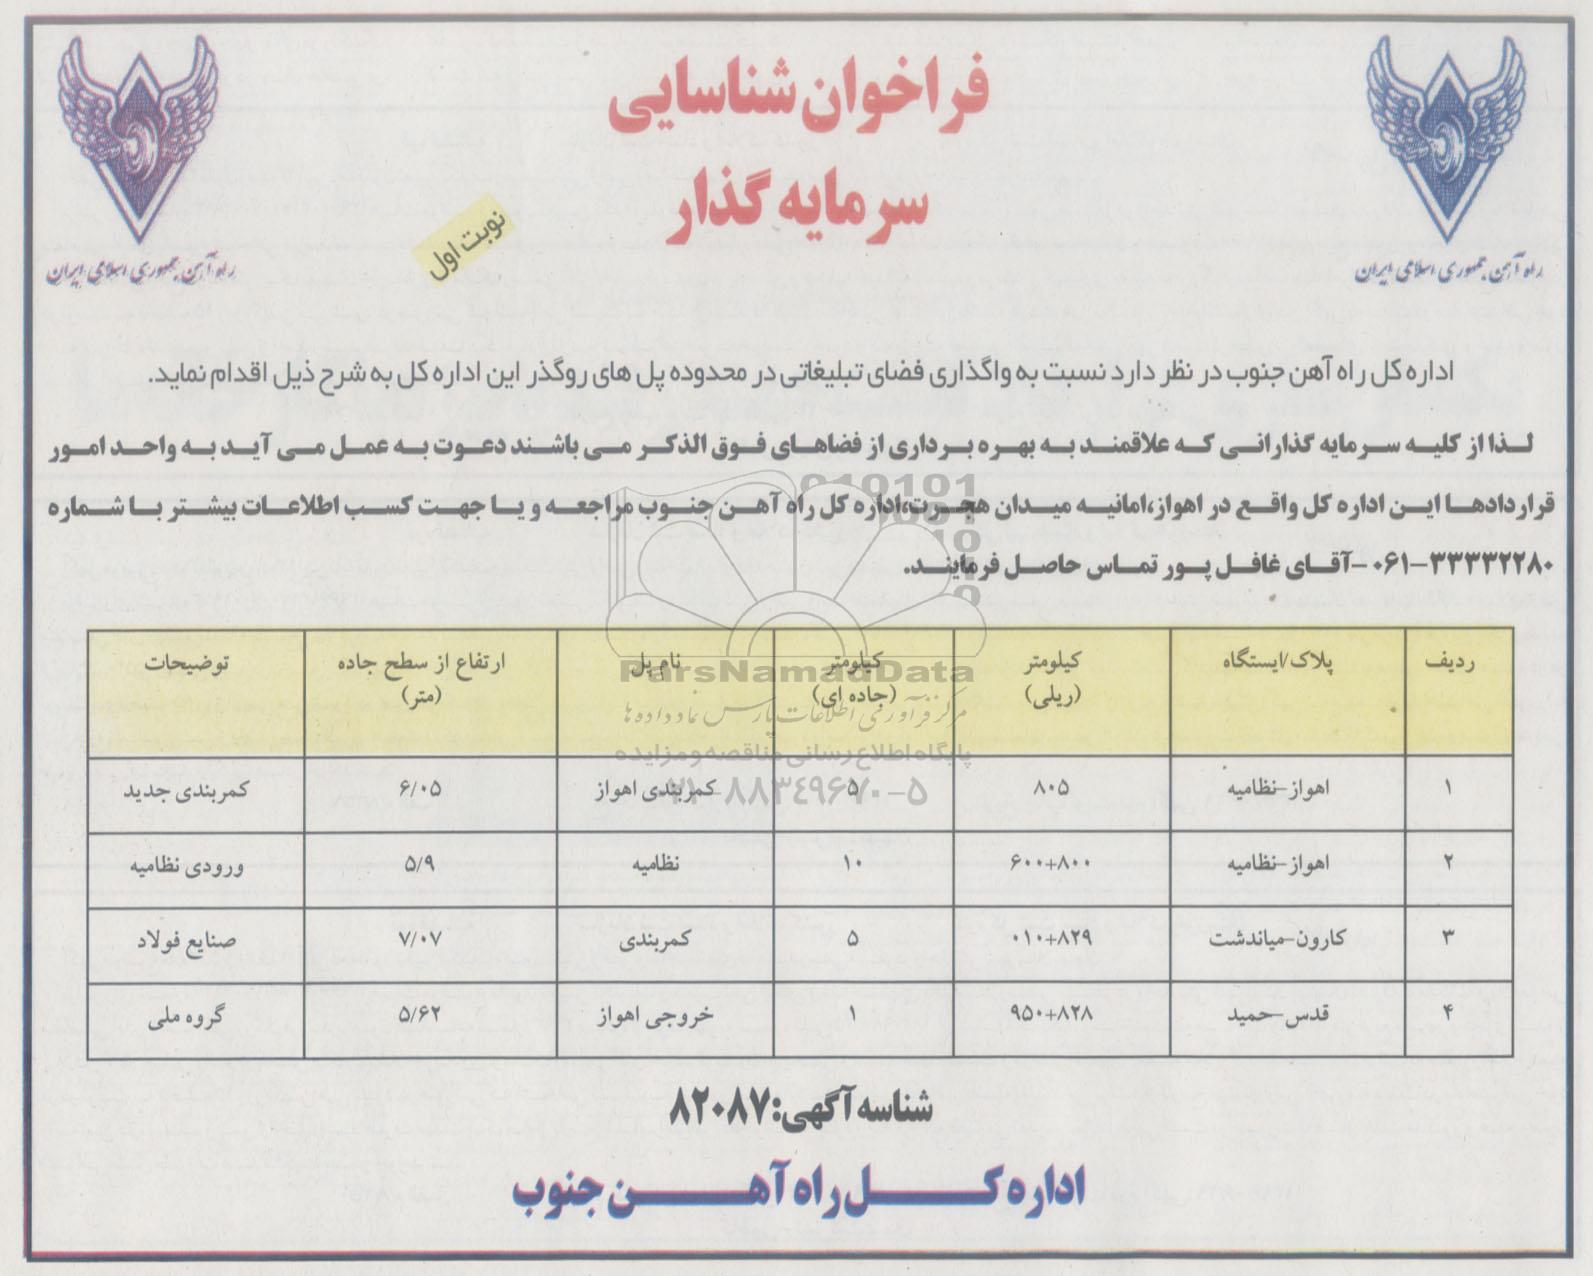 فراخوان شناسایی
سرمایه گذار
نوبت اول
راه آهن جمهوری اسلامی ایران
راه آهن جمهوری اسلامی ایران
اداره کل راه آهن جنوب در نظر دارد نسبت به واگذاری فضای تبلیغاتی در محدوده پل های روگذر این اداره کل به شرح ذیل اقدام نماید.
لذا از کلیه سرمایه گذارانی که علاقمند به بهره برداری از فضاهای فوق الذکر می باشند دعوت به عمل می آید به واحد امور
قراردادها این اداره کل واقع در اهواز،امانیه میدان هجرت،اداره کل راه آهن جنوب مراجعه و یا جهت کسب اطلاعات بیشتر با شماره
۰۶۱-۳۳۳۳۲۲۸۰ -آقای غافل پور تماس حاصل فرمایند.
ردیف پلاک/ایستگاه کیلومتر (ریلی) کیلومتر (جاده ای) نام پل ارتفاع از سطح جاده (متر) توضیحات
۱ اهواز-نظامیه ۸۰۵ ۵ کمربندی اهواز ۶/۰۵ کمربندی جدید
۲ اهواز-نظامیه ۶۰۰+۸۰۰ ۱۰ نظامیه ۵/۹ ورودی نظامیه
۳ کارون-میاندشت ۰۱۰+۸۲۹ ۵ کمربندی ۷/۰۷ صنایع فولاد
۴ قدس-حمید ۹۵۰+۸۲۸ ۱ خروجی اهواز ۵/۶۲ گروه ملی
ParsNamadData
مرکز فرآوری اطلاعات پارس نماد داده ها
پایگاه اطلاع رسانی مناقصه و مزایده
۰۲۱-۸۸۳۴۹۶۷۰-۵
شناسه آگهی:۸۲۰۸۷
اداره کل راه آهن جنوب